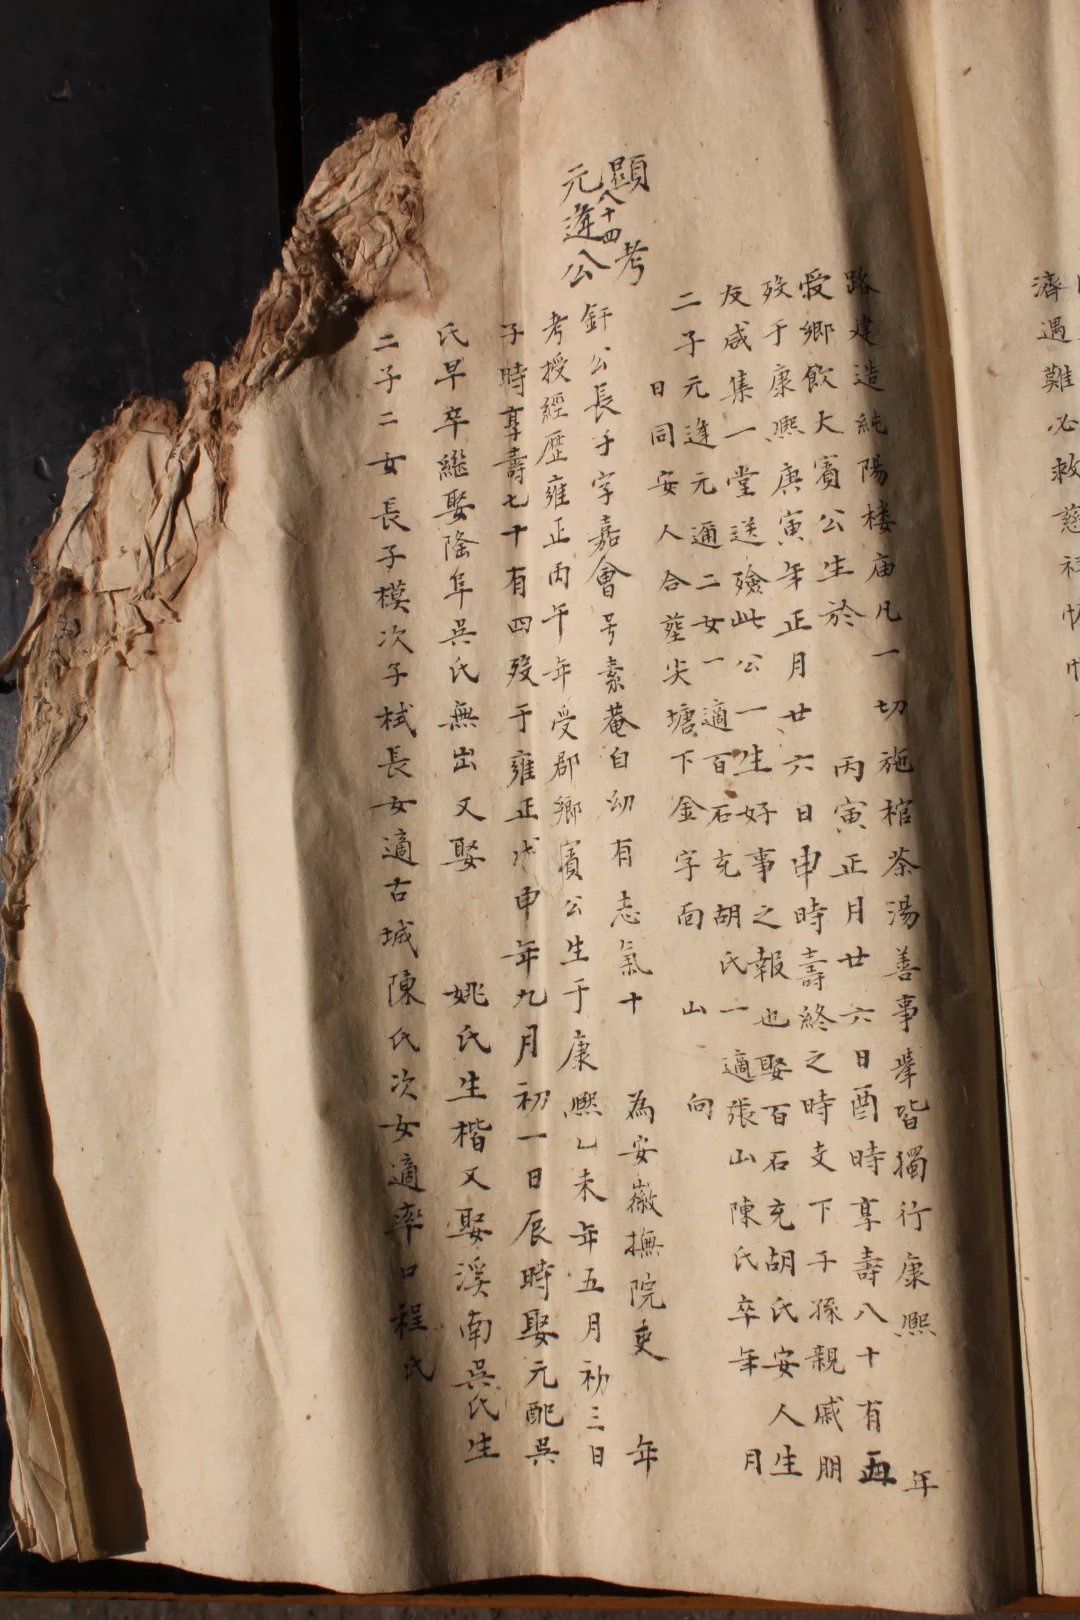 濟遇難必救慈
路建造純陽楼庙凡一切施棺茶湯善事举皆獨行康熙 年
受鄉飲大賓公生於 丙寅正月廿六日酉時享壽八十有五
歿于康熙庚寅年正月廿六日申時壽終之時支下子孫親戚朋
友咸集一堂送殮此公一生好事之報也娶百石充胡氏安人生
二子元逢元邇二女一適百石充胡氏一適張山陳氏卒年 月
日同安人合塟尖塘下金字面 山 向
顯考
八十四
元逢公
釬公長子字嘉會号素菴自幼有志氣十 為安徽撫院吏 年
考授經歷雍正丙午年受郡鄉賓公生于康熙乙未年五月初三日
子時享壽七十有四歿于雍正戊申年九月初一日辰時娶元配吳
氏早卒継娶隆阜吳氏無出又娶 姚氏生楷又娶溪南吳氏生
二子二女長子模次子栻長女適古城陳氏次女適率口程氏